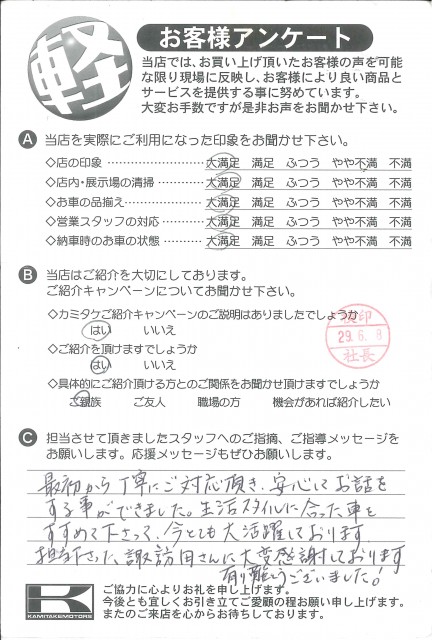 軽
お客様アンケート
当店では、お買い上げ頂いたお客様の声を可能
な限り現場に反映し、お客様により良い商品と
サービスを提供する事に努めています。
大変お手数ですが是非お声をお聞かせ下さい。
A 当店を実際にご利用になった印象をお聞かせ下さい。
◇店の印象 大満足 満足 ふつう やや不満 不満
◇店内・展示場の清掃 大満足 満足 ふつう やや不満 不満
◇お車の品揃え 大満足 満足 ふつう やや不満 不満
◇営業スタッフの対応 大満足 満足 ふつう やや不満 不満
◇納車時のお車の状態 大満足 満足 ふつう やや不満 不満
B 当店はご紹介を大切にしております。
ご紹介キャンペーンについてお聞かせ下さい。
◇カミタケご紹介キャンペーンのご説明はありましたでしょうか
はい いいえ
◇ご紹介を頂けますでしょうか
はい いいえ
◇具体的にご紹介頂ける方とのご関係をお聞かせ頂けますでしょうか
ご親族 ご友人 職場の方 機会があれば紹介したい
印
29.6.8
社長
C 担当させて頂きましたスタッフへのご指摘、ご指導メッセージを
お願いします。応援メッセージもぜひお願いします。
最初から丁寧にご対応頂き、安心してお話を
する事ができました。生活スタイルに合った車を
すすめて下さって、今とても大活躍しております。
担当下さった、諏訪田さんに大変感謝しております
有り難うございました!
K
KAMITAKEMOTORS
ご協力に心よりお礼を申し上げます。
今後とも宜しくお引き立てご愛顧の程お願い申し上げます。
またのご来店を心からお待ちしております。